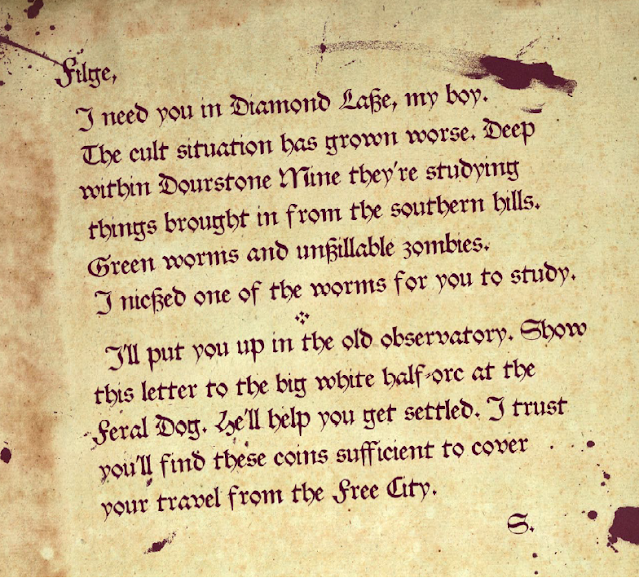 Filge,
I need you in Diamond Lake, my boy.
The cult situation has grown worse. Deep
within Dourstone Mine they're studying
things brought in from the southern hills.
Green worms and unkillable zombies.
I nicked one of the worms for you to study.
I'll put you up in the old observatory. Show
this letter to the big white half-orc at the
Feral Dog. He'll help you get settled. I trust
you'll find these coins sufficient to cover
your travel from the Free City.
S.